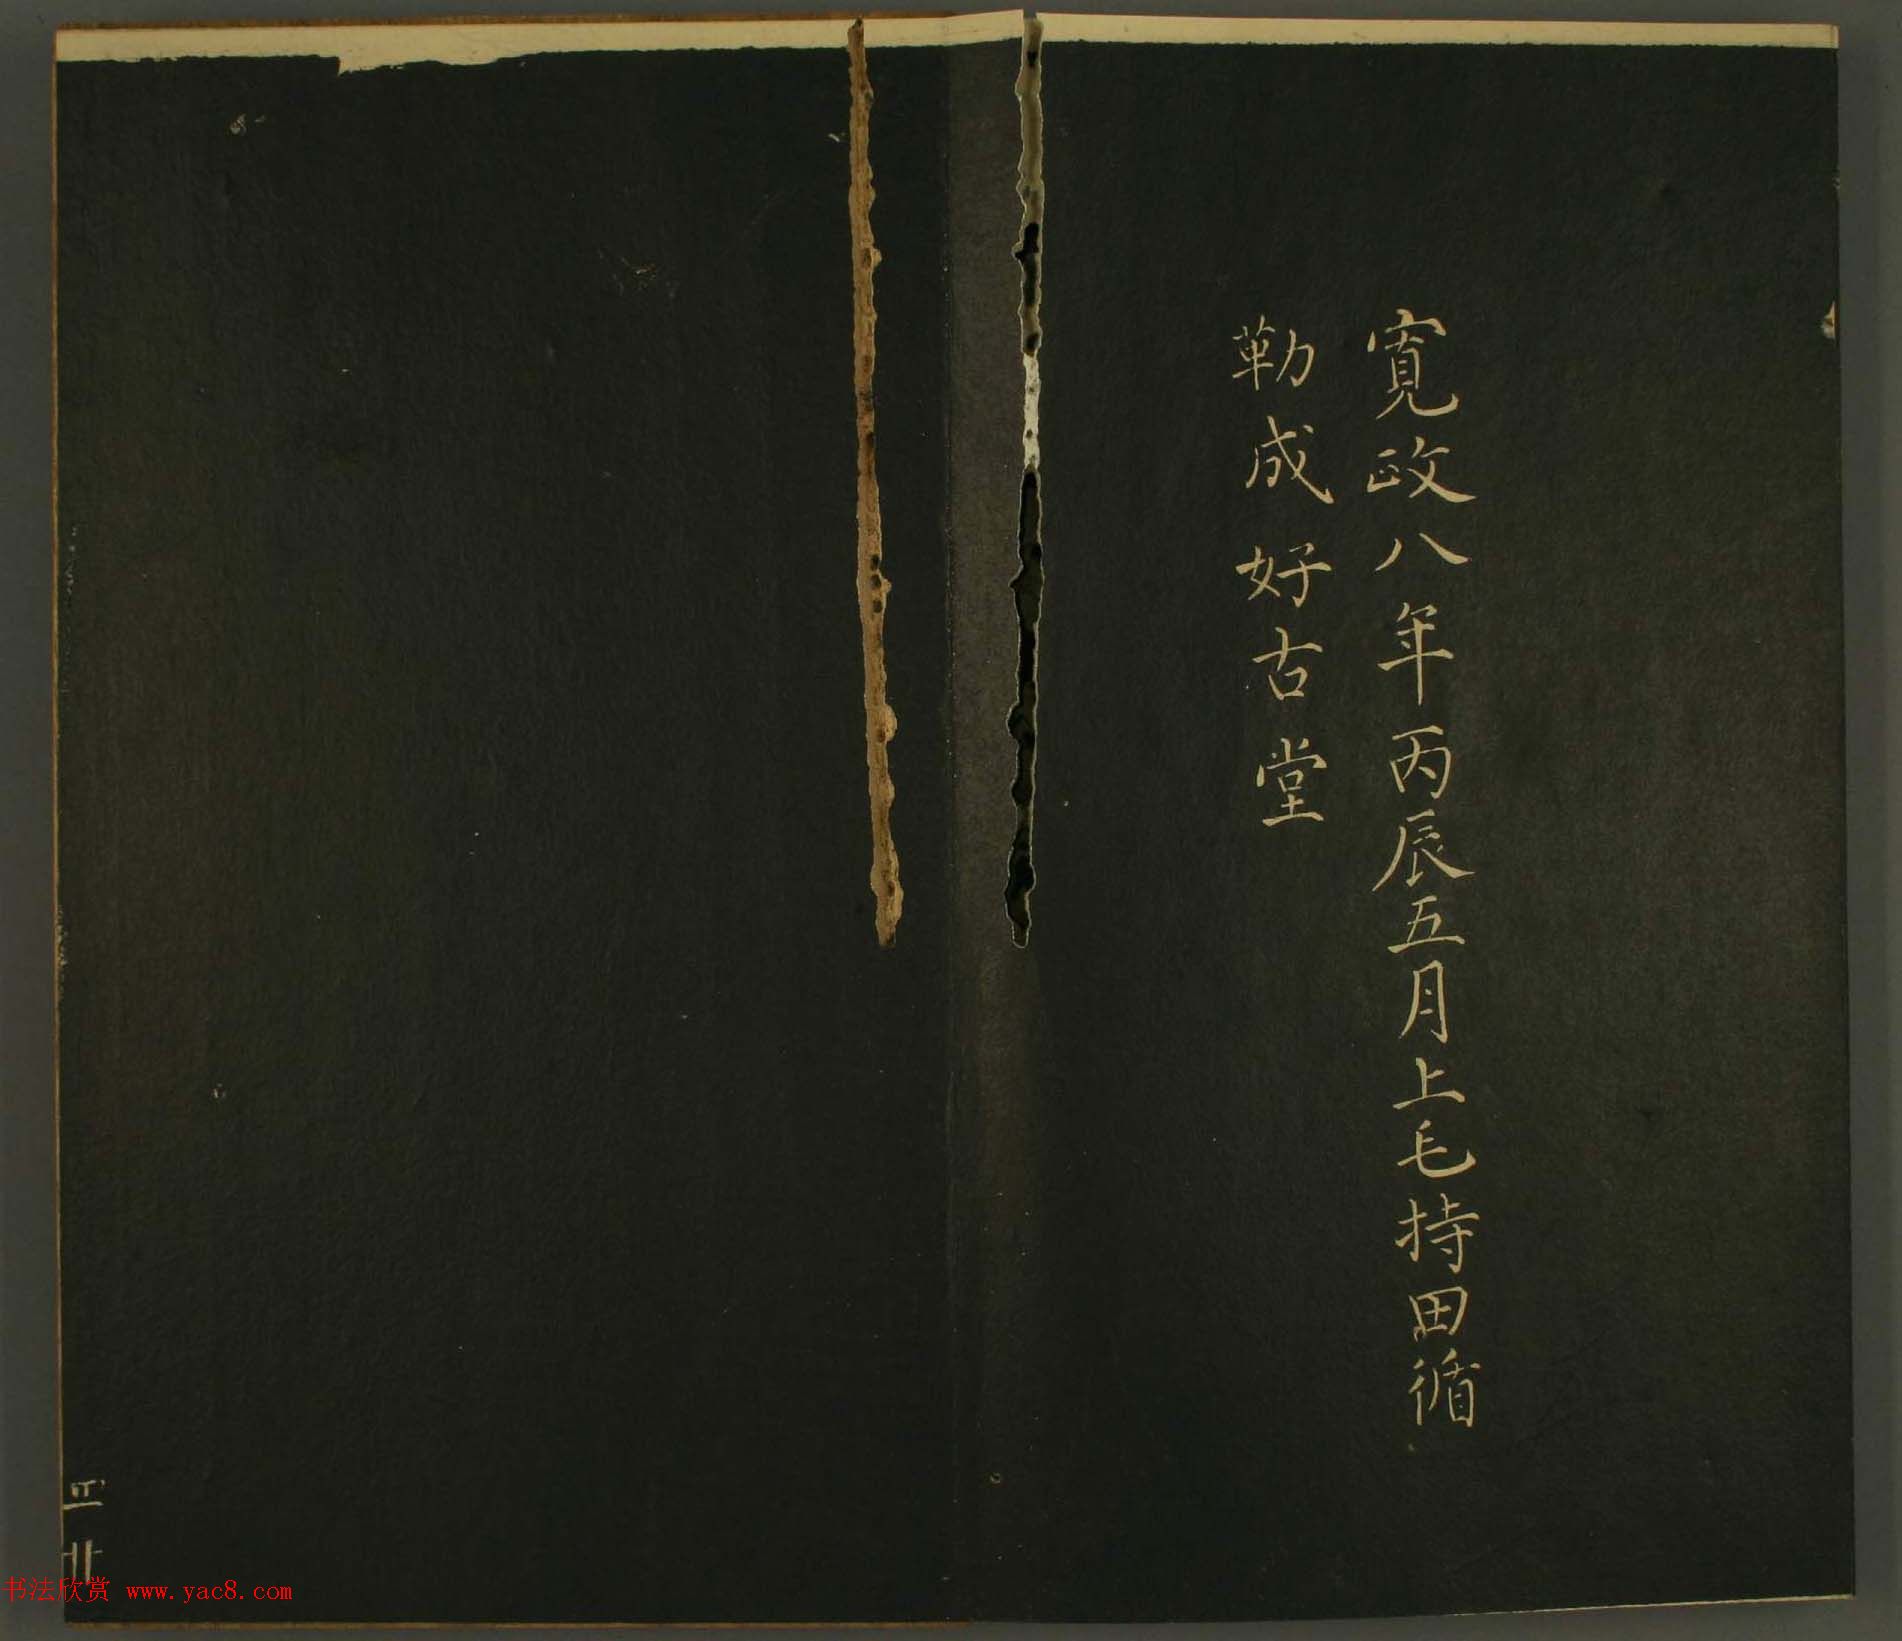 寛政八年丙辰五月上毛持田循
勒成好古堂
书法欣赏 www.yac8.com